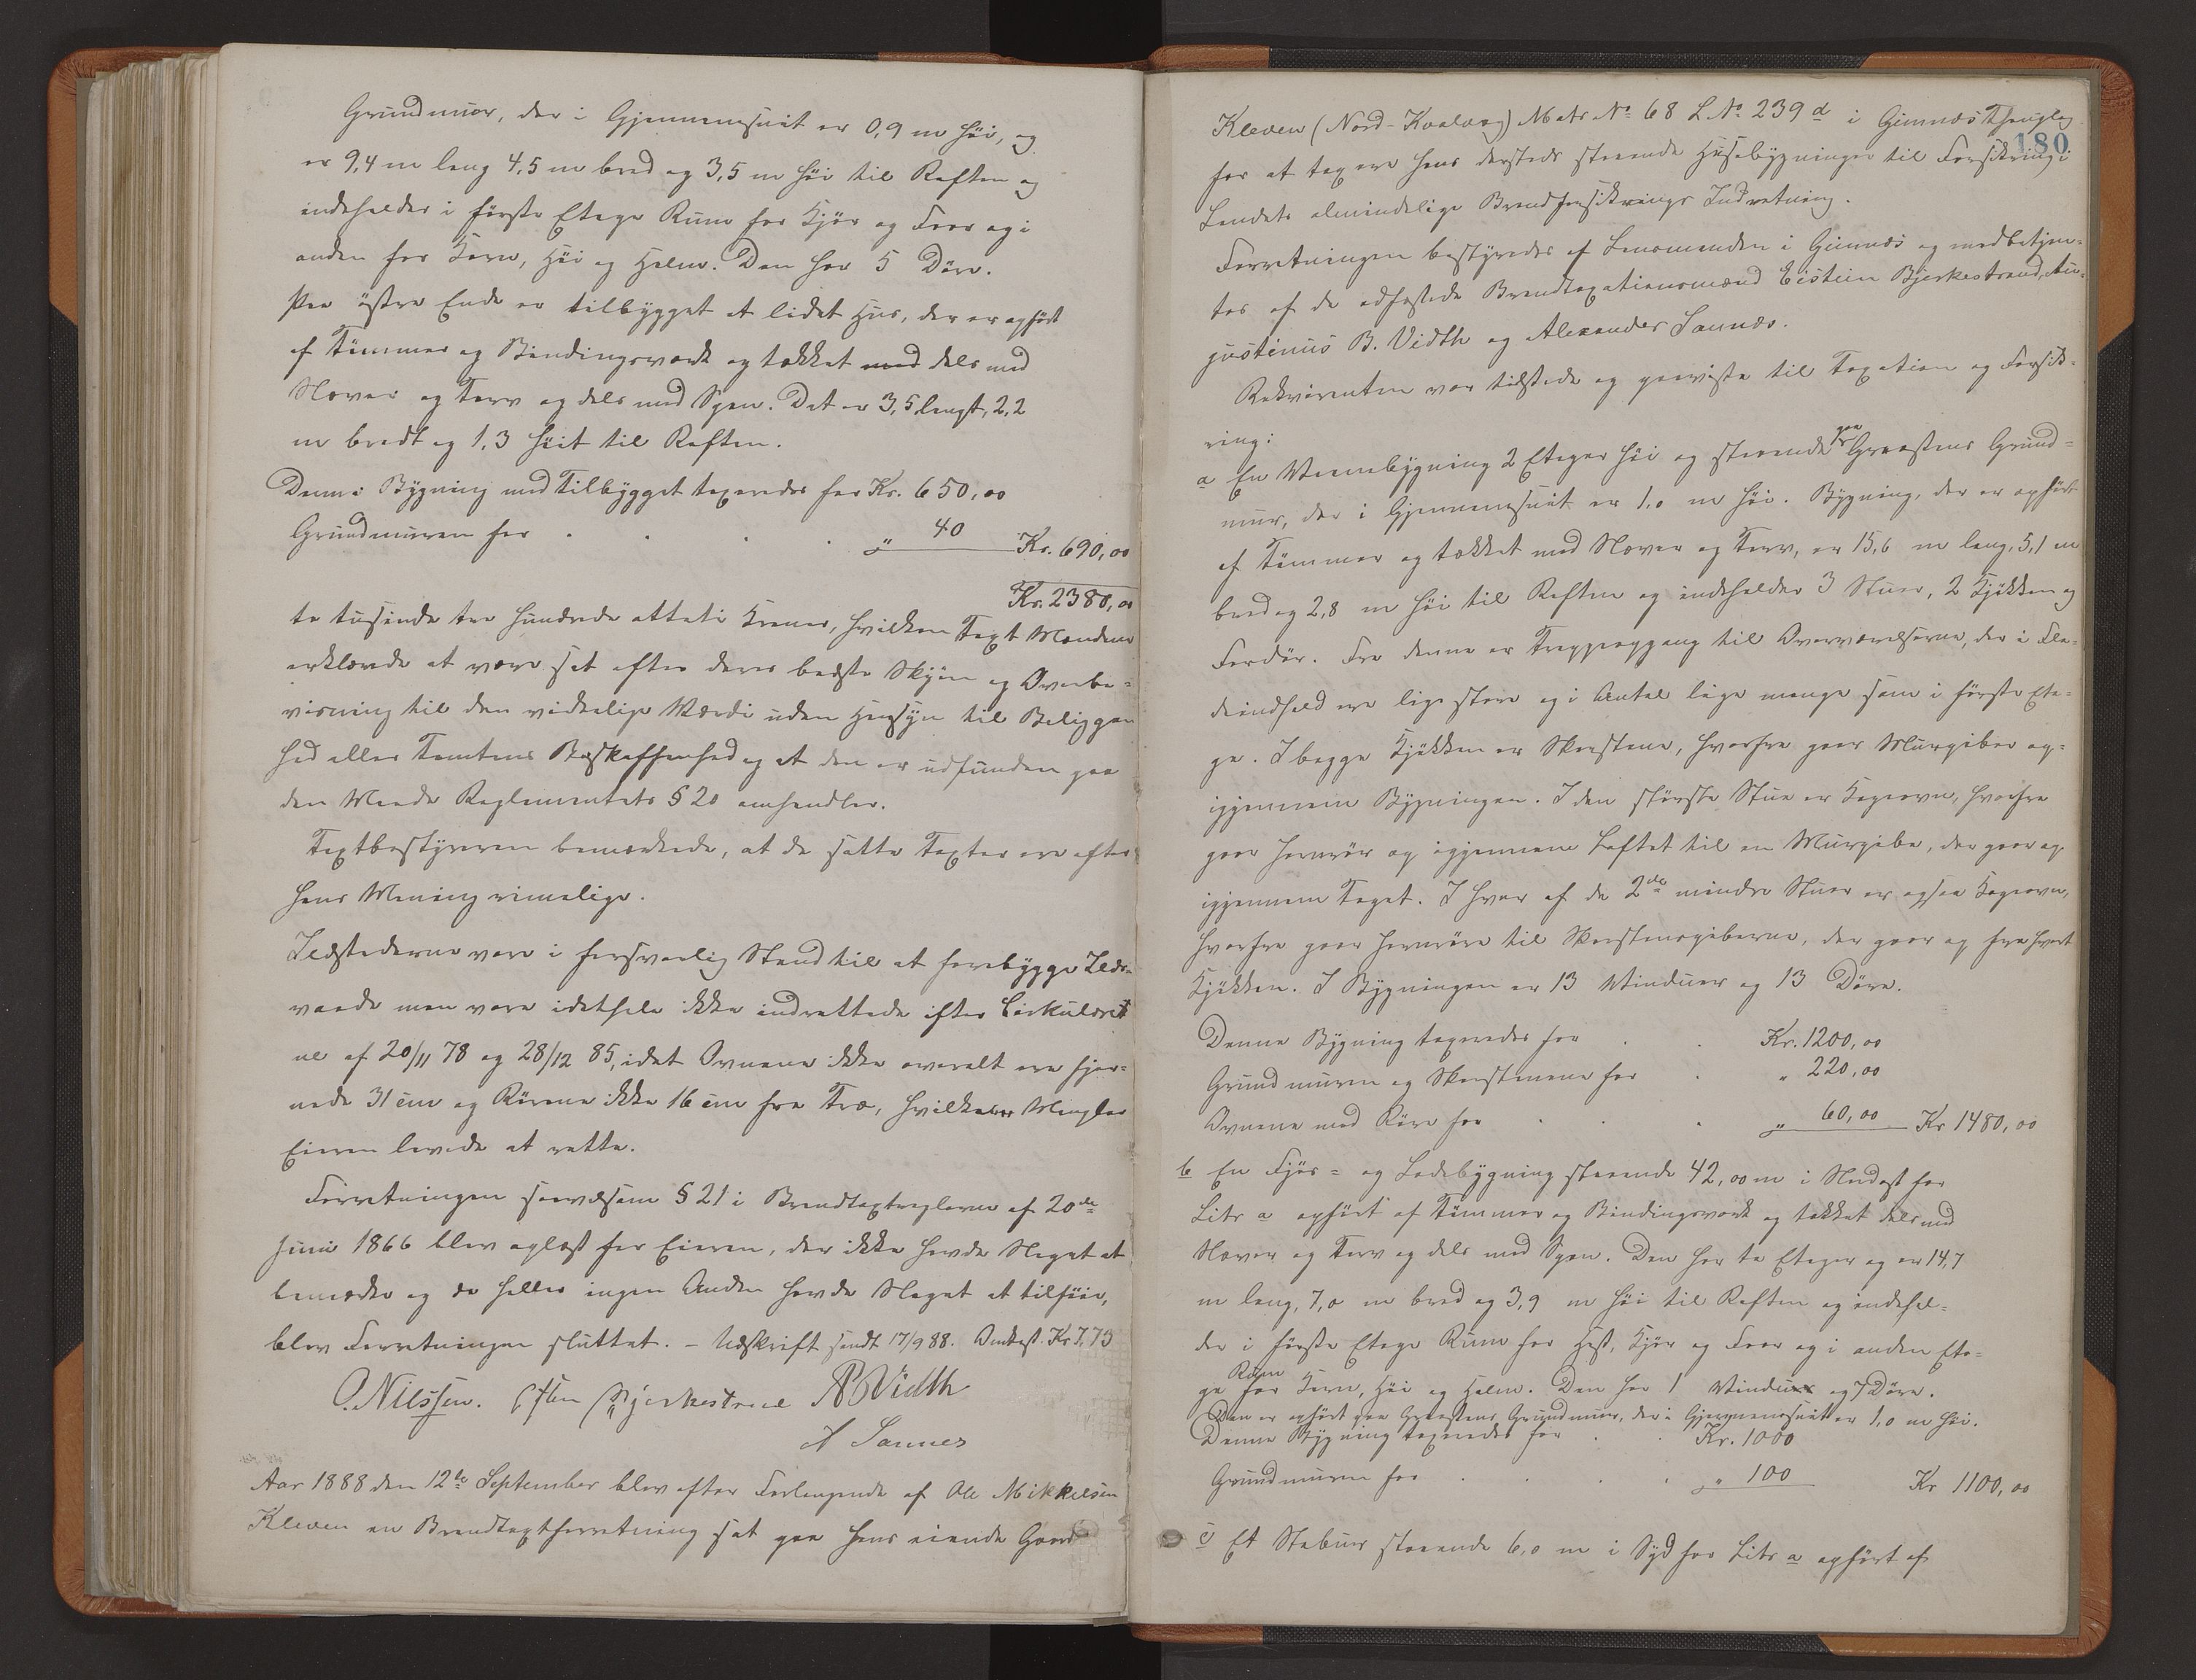 Grundmuor, der i Gjennemsnit er 0,9 m høi, og
er 9,4 m lang 4,5 m bred og 3,5 m høi til Raften og
indeholder i første Etage Rum for Kjør og Foer og i
anden for Korn, Høi og Halm. Den har 5 Døre.
Paa østre Ende er tilbygget et lidet Hus, der er opført
af Tømmer og Bindingsværk og tækket med dels med
Næver og Torv og dels med Spon. Det er 3,5 langt, 2,2
m bredt og 1,3 høit til Raften.
Denne Bygning med Tilbygget taxeredes for Kr. 650,00
Grundmuren for . . . „ 40 Kr. 690,00
Kr. 2380,00
to tusinde tre hundrede otteti Kroner, hvilken Taxt Mændene
erklærede at være sat efter deres bedste Skjøn og Overbe-
visning til den virkelige Værdi uden Hensyn til Beliggen
hed eller Tomtens Beskaffenhed og at den er udfunden paa
den Maade Reglementets § 20 omhandler.
Taxtbestyreren bemærkede, at de satte Taxter ere efter
hans Mening rimelige.
Ildstederne vare i forsvarlig Stand til at forebygge Ilds-
vaade men vare idethele ikke indrettede efter Cirkulæret
ne af 20/11 78 og 28/12 85, idet Ovnene ikke overalt ere fjer-
nede 31 cm og Rørene ikke 16 cm fra Træ, hvilke Mangler
Eieren lovede at rette.
Forretningen saavelsom § 21 i Brandtaxtreglerne af 20de
Juni 1866 blev oplæst for Eieren, der ikke havde Noget at
bemærke og da heller ingen Anden havde Noget at tilføie,
blev Forretningen sluttet. – Udskrift sendt 17/9 88. Omkost. Kr 7,73
O. Nilssen. Esten Bjerkestrand AB Vidth
A Sannes
Aar 1888 den 12te September blev efter Forlangende af Ole Mikkelsen
Kleven en Brandtaxtforretning sat paa hans eiende Gaard
180
Kleven (Nord-Kvalvaag) Matr. No 68 L. No 239 d i Gimnæs Thinglag
for at taxere hans dersteds staaende Husebygninger til Forsikring i
Landets almindelige Brandforsikrings Indretning.
Forretningen bestyredes af Lensmanden i Gimnæs og medbetjen-
tes af de edfæstede Brandtaxationsmænd Eistein Bjerkestrand, Au-
justinus B. Vidth og Alexander Sannæs.
Rekvirenten var tilstede og paaviste til Taxation og Forsik-
ring:
a En Vaanebygning 2 Etager høi og staaende paa Graastens Grund-
mur, der i Gjennemsnit er 1,0 m høi. Bygning, der er opført
af Tømmer og tækket med Næver og Torv, er 15,6 m lang, 5,1 m
bred og 2,8 m høi til Raften og indeholder 3 Stuer, 2 Kjøkken og
Fordør. Fra denne er Trappeopgang til Overværelserne, der i Fla-
deindhold ere lige store og i Antal lige mange som i første Eta-
ge. I begge Kjøkken er Skorstene, hvorfra gaar Murpiber op-
igjennem Bygningen. I den største Stue er Kogeovn, hvorfra
gaar Jernrør op igjennem Loftet til en Murpibe, der gaar op
igjennem Taget. I hver af de 2de mindre Stuer er ogsaa Kogeovn,
hvorfra gaar Jernrøre til Skorstenspiberne, der gaar op fra hvert
Kjøkken. I Bygningen er 13 Vinduer og 13 Døre.
Denne Bygning taxeredes for . . Kr. 1200,00
Grundmuren og Skorstenene for . „ 220,00
Ovnene med Røre for . . . „ 60,00 Kr 1480,00
b En Fjøs- og Ladebygning staaende 42,00 m i Nordost for
Litr a opført af Tømmer og Bindingsværk og tækket dels med
Næver og Torv og dels med Spon. Den har to Etager og er 14,7
m lang, 7,0 m bred og 3,9 m høi til Raften og indehol-
der i første Etage Rum for Hest, Kjør og Foer og i anden Eta-
ge Rum for Korn, Høi og Halm. Den har 1 Vindu og 7 Døre.
Den er opført paa Graastens Grundmur, der i Gjennemsnit er 1,0 m høi.
Denne Bygning taxeredes for . . Kr. 1000
Grundmuren for . . . . „ 100 Kr 1100,00
c Et Stabur staaende 6,0 m i Syd for Litr a opført af